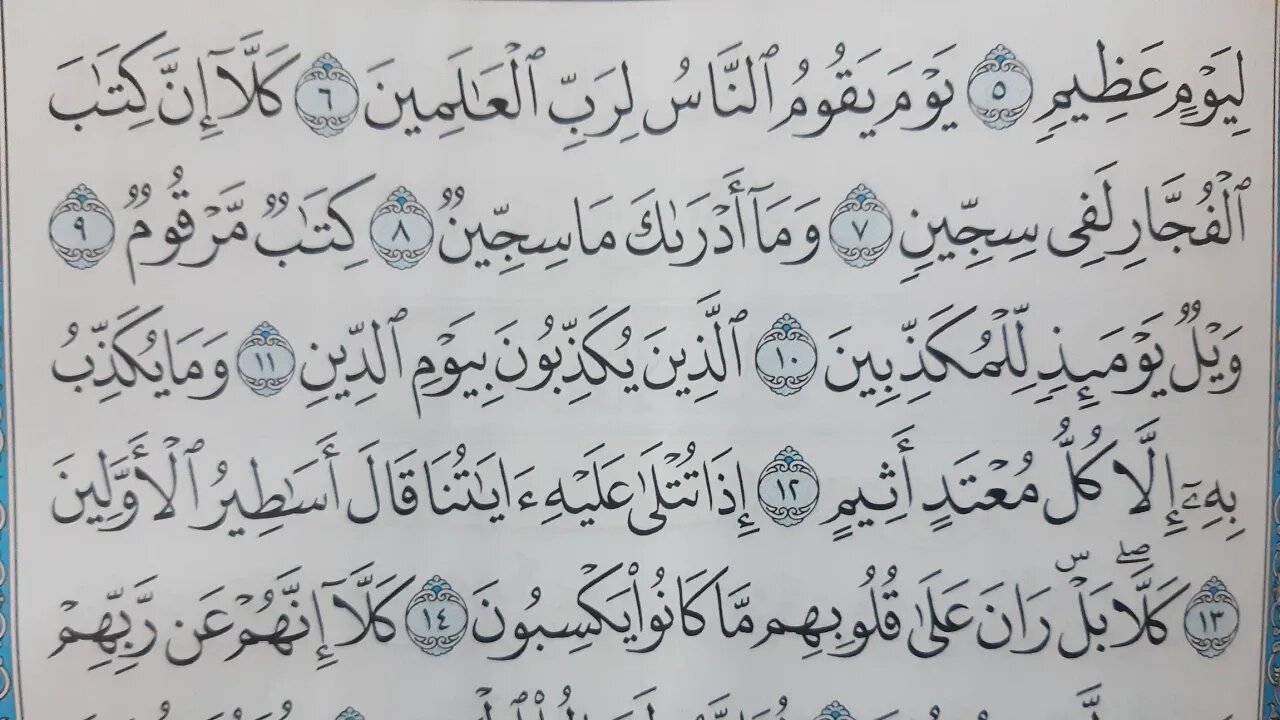 لِيَوْمٍ عَظِيمٍ ٥ يَوْمَ يَقُومُ ٱلنَّاسُ لِرَبِّ ٱلْعَـٰلَمِينَ ٦ كَلَّآ إِنَّ كِتَـٰبَ
ٱلْفُجَّارِ لَفِى سِجِّينٍ ٧ وَمَآ أَدْرَىٰكَ مَا سِجِّينٌ ٨ كِتَـٰبٌ مَّرْقُومٌ ٩
وَيْلٌ يَوْمَئِذٍ لِّلْمُكَذِّبِينَ ١٠ ٱلَّذِينَ يُكَذِّبُونَ بِيَوْمِ ٱلدِّينِ ١١ وَمَا يُكَذِّبُ
بِهِۦٓ إِلَّا كُلُّ مُعْتَدٍ أَثِيمٍ ١٢ إِذَا تُتْلَىٰ عَلَيْهِ ءَايَـٰتُنَا قَالَ أَسَـٰطِيرُ ٱلْأَوَّلِينَ
١٣ كَلَّا ۖ بَلْ ۜ رَانَ عَلَىٰ قُلُوبِهِم مَّا كَانُوا۟ يَكْسِبُونَ ١٤ كَلَّآ إِنَّهُمْ عَن رَّبِّهِمْ